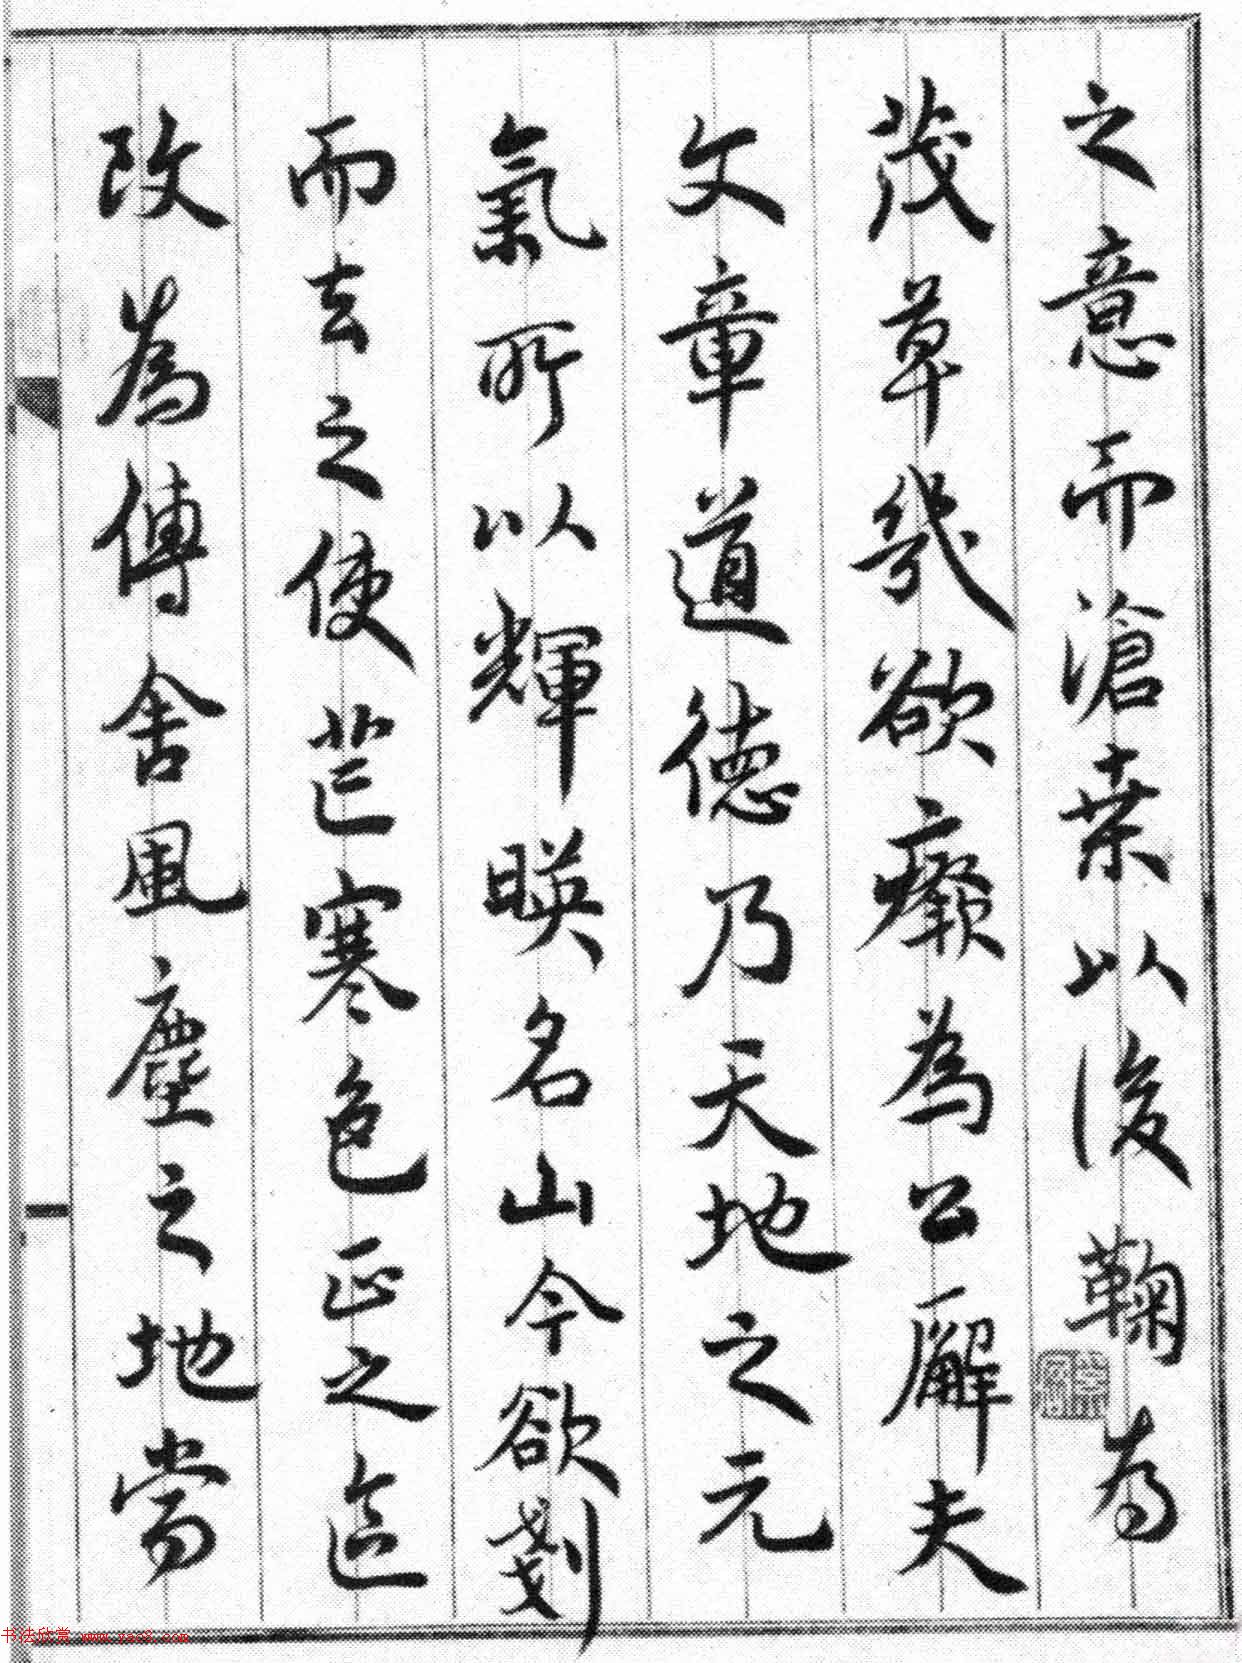 之意而滄桒以後鞠為
茂草幾欲癈為公廨夫
文章道德乃天地之元
氣所以輝暎名山今欲剗
而去之使芒寒色正之區
改為傳舍風塵之地當
书法欣赏 www.yac8.com